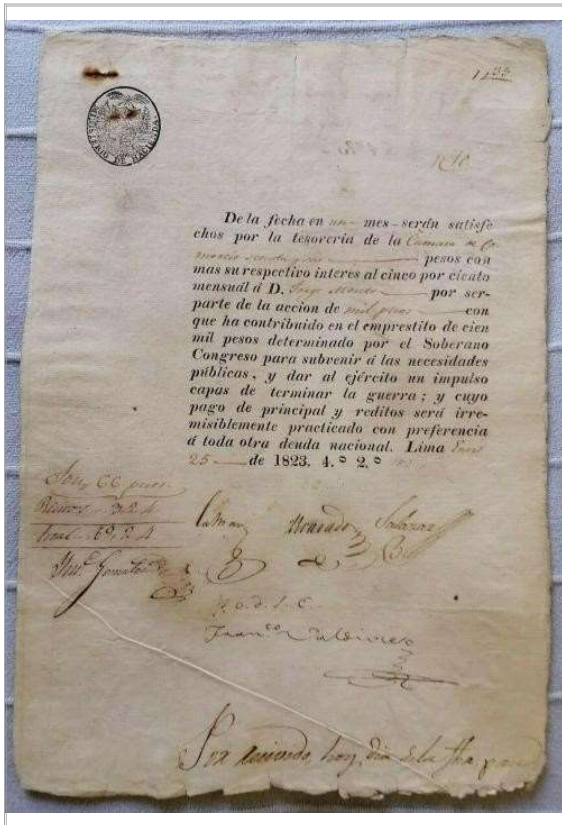 MINISTERIO DE HACIENDA
De la fecha en un mes serán satisfe
chos por la tesoreria de la Camara de Co
mercio sesenta y seis pesos con
mas su respectivo interes al cinco por ciento
mensual á D. Jorge por ser
parte de la accion de mil pesos con
que ha contribuido en el emprestito de cien
mil pesos determinado por el Soberano
Congreso para subvenir á las necesidades
públicas, y dar al ejército un impulso
capas de terminar la guerra; y cuyo
pago de principal y reditos será irre-
misiblemente practicado con preferencia
á toda otra deuda nacional. Lima Enero
25 de 1823. 4.º 2.º
Son 66 pesos
3.2.4
69.2.4
La Mar Alvarado Salazar
Franco Valdivieso
Por hoy dia de la fha